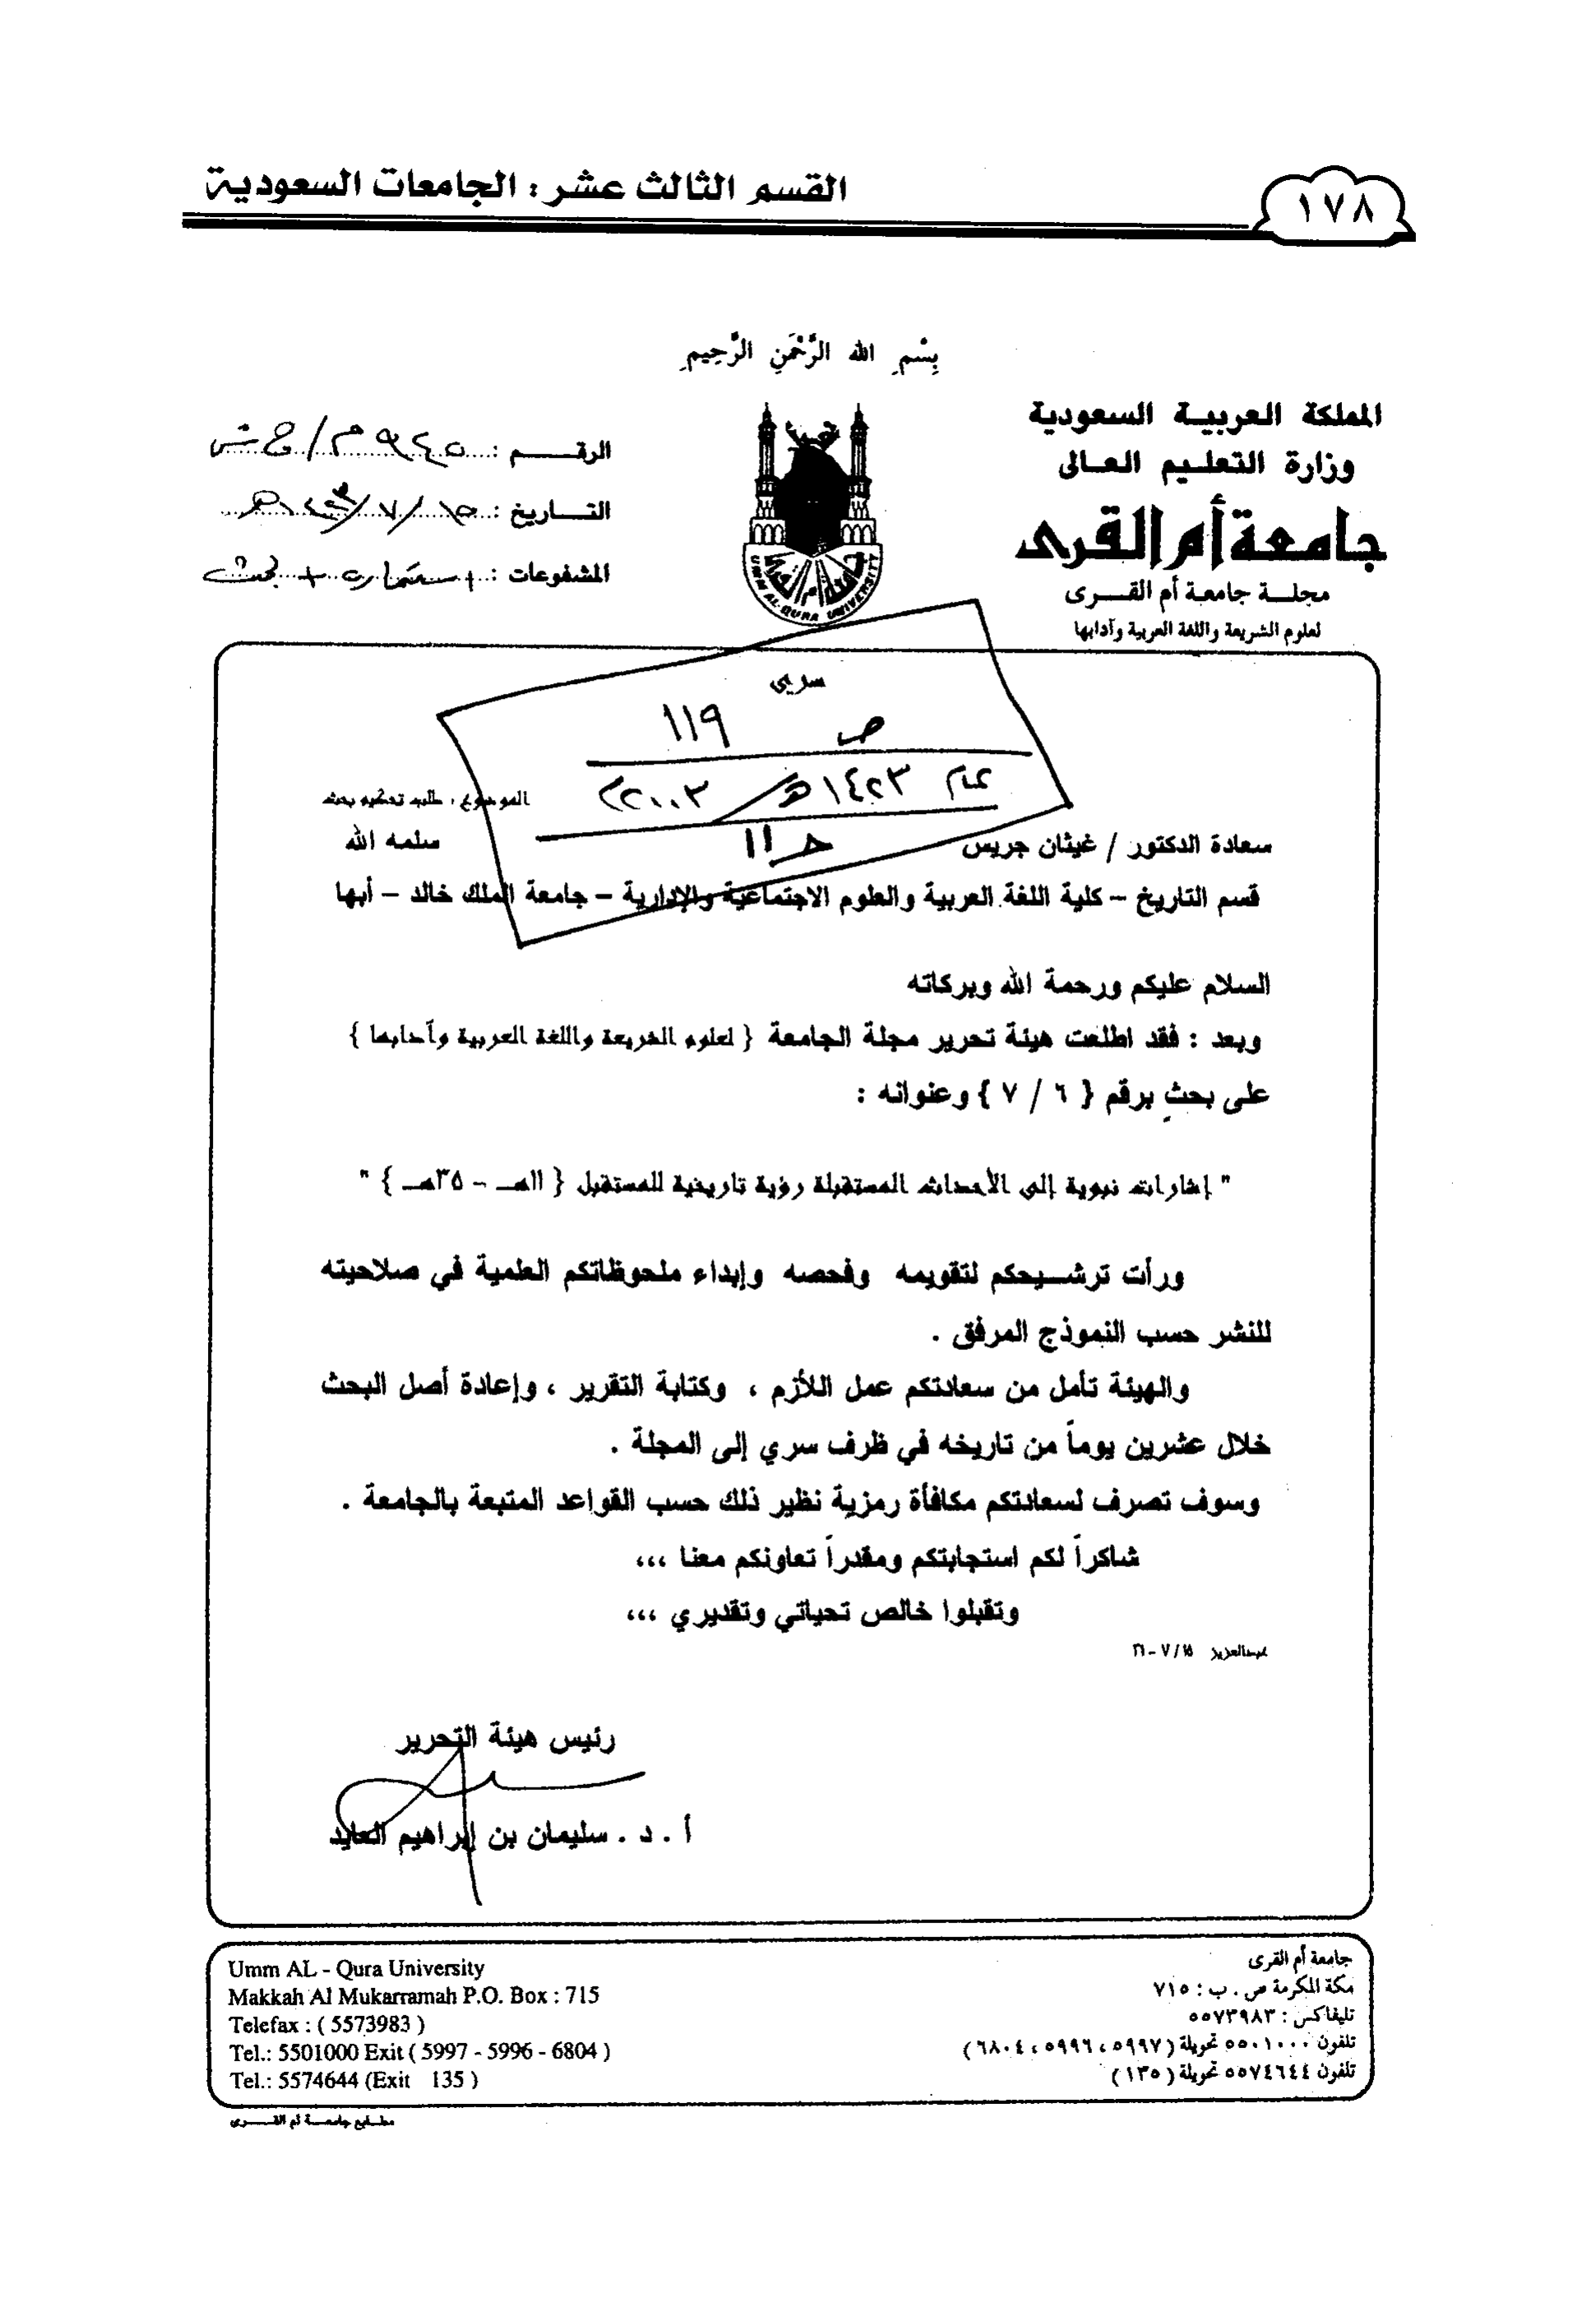 ١٧٨
القسم الثالث عشر : الجامعات السعودية
بِسْمِ الله الرَّحْمَنِ الرَّحِيمِ
المملكة العربية السعودية
وزارة التعليم العالى
جامعة أم القرى
مجلة جامعة أم القرى
لعلوم الشريعة واللغة العربية وآدابها
UMM AL-QURA UNIVERSITY
الرقم : ٩٤٥ م/ج ش
التاريخ : ١٥/٧/١٤٢٣هـ
المشفوعات : استمارة + بحث
سري
ص ١١٩
عام ١٤٢٣هـ/٢٠٠٣م
جـ ١١
الموضوع : طلب تحكيم بحث
سعادة الدكتور / غيثان جريس سلمه الله
قسم التاريخ – كلية اللغة العربية والعلوم الاجتماعية والإدارية – جامعة الملك خالد – أبها
السلام عليكم ورحمة الله وبركاته
وبعد : فقد اطلعت هيئة تحرير مجلة الجامعة { لعلوم الشريعة واللغة العربية وآدابها }
على بحث برقم { ٦ / ٧ } وعنوانه :
" إشارات نبوية إلى الأحداث المستقبلة رؤية تاريخية للمستقبل { ١١هـ - ٣٥هـ } "
ورأت ترشيحكم لتقويمه وفحصه وإبداء ملحوظاتكم العلمية في صلاحيته
للنشر حسب النموذج المرفق .
والهيئة تأمل من سعادتكم عمل اللأزم ، وكتابة التقرير ، وإعادة أصل البحث
خلال عشرين يوماً من تاريخه في ظرف سري إلى المجلة .
وسوف تصرف لسعادتكم مكافأة رمزية نظير ذلك حسب القواعد المتبعة بالجامعة .
شاكراً لكم استجابتكم ومقدراً تعاونكم معنا ،،،
وتقبلوا خالص تحياتي وتقديري ،،،
عبدالعزيز ١٥/٧-٢٦
رئيس هيئة التحرير
أ . د . سليمان بن إبراهيم العايد
جامعة أم القرى
مكة المكرمة ص . ب : ٧١٥
تليفاكس : ٥٥٧٣٩٨٣
تلفون ٥٥٠١٠٠٠ تحويلة ( ٥٩٩٧ ، ٥٩٩٦ ، ٦٨٠٤ )
تلفون ٥٥٧٤٦٤٤ تحويلة ( ١٣٥ )
Umm AL - Qura University
Makkah Al Mukarramah P.O. Box : 715
Telefax : ( 5573983 )
Tel.: 5501000 Exit ( 5997 - 5996 - 6804 )
Tel.: 5574644 (Exit 135 )
مطابع جامعة أم القرى